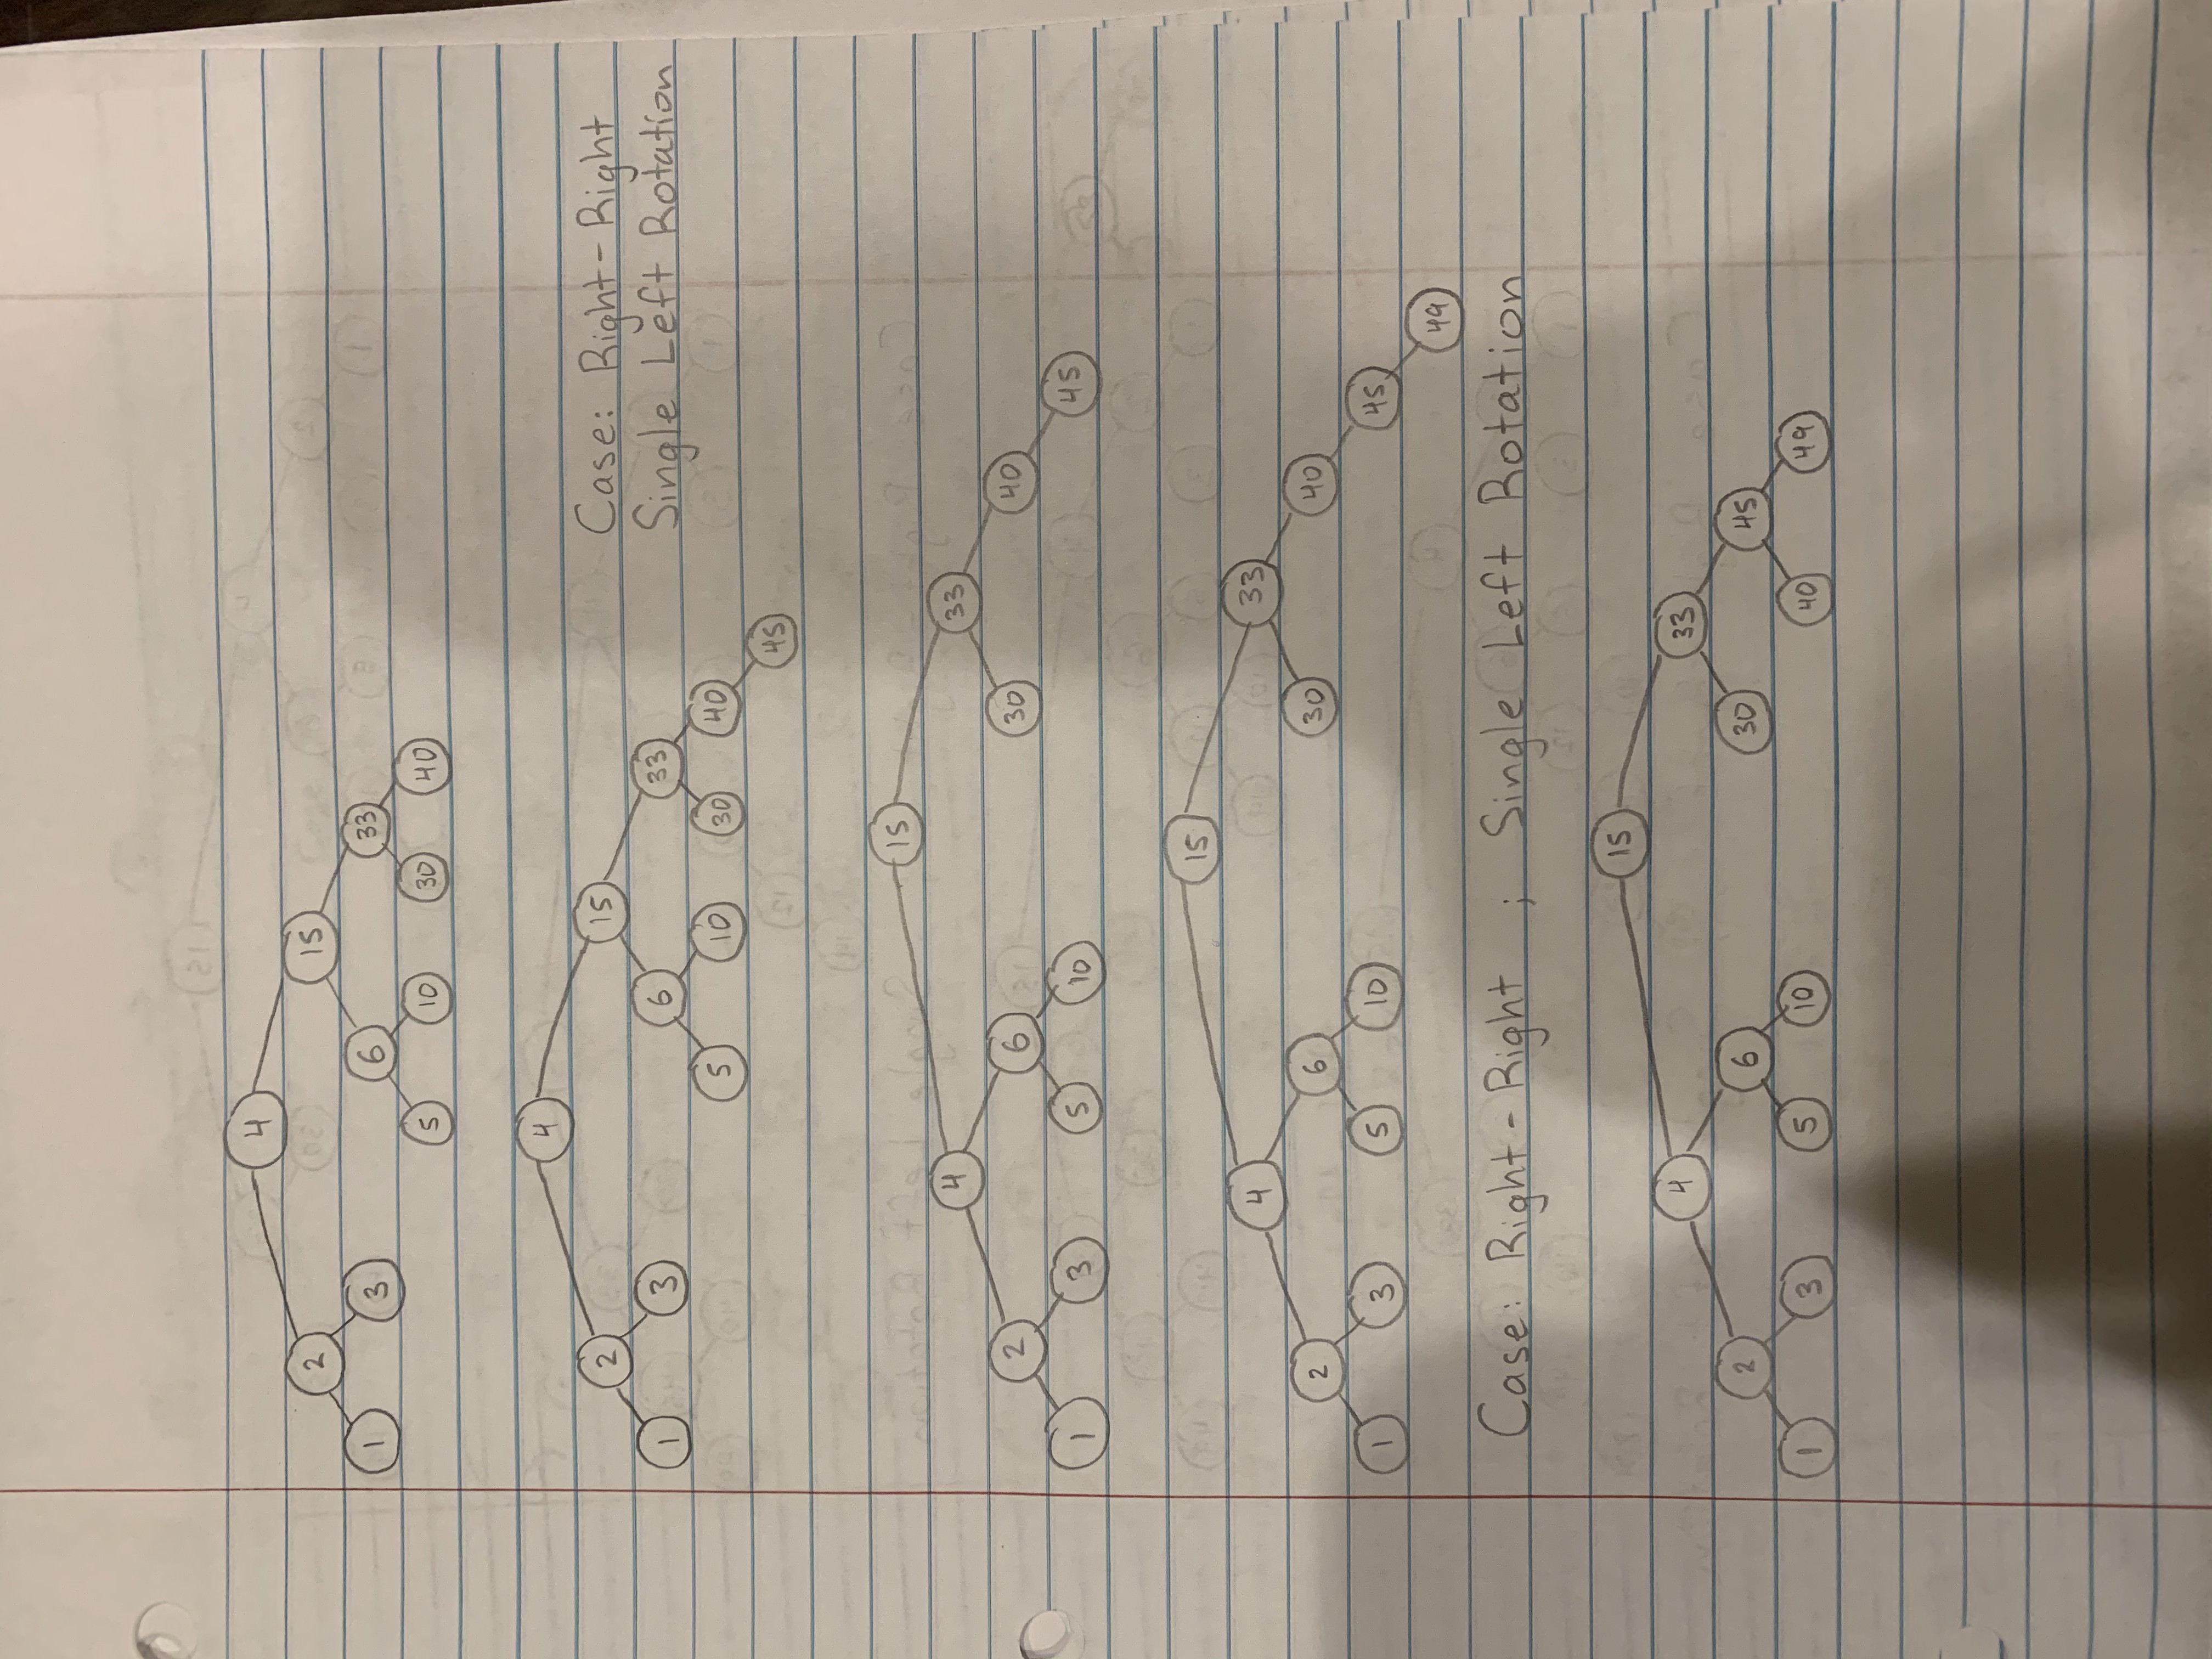 4
2 15
1 3 6 33
5 10 30 40
4
2 15 Case: Right-Right
1 3 6 33 Single Left Rotation
5 10 30 40
45
15
4 33
2 6 30 40
1 3 5 10 45
15
4 33
2 6 30 40
1 3 5 10 45
49
Case: Right-Right ; Single Left Rotation
15
4 33
2 6 30 45
1 3 5 10 40 49